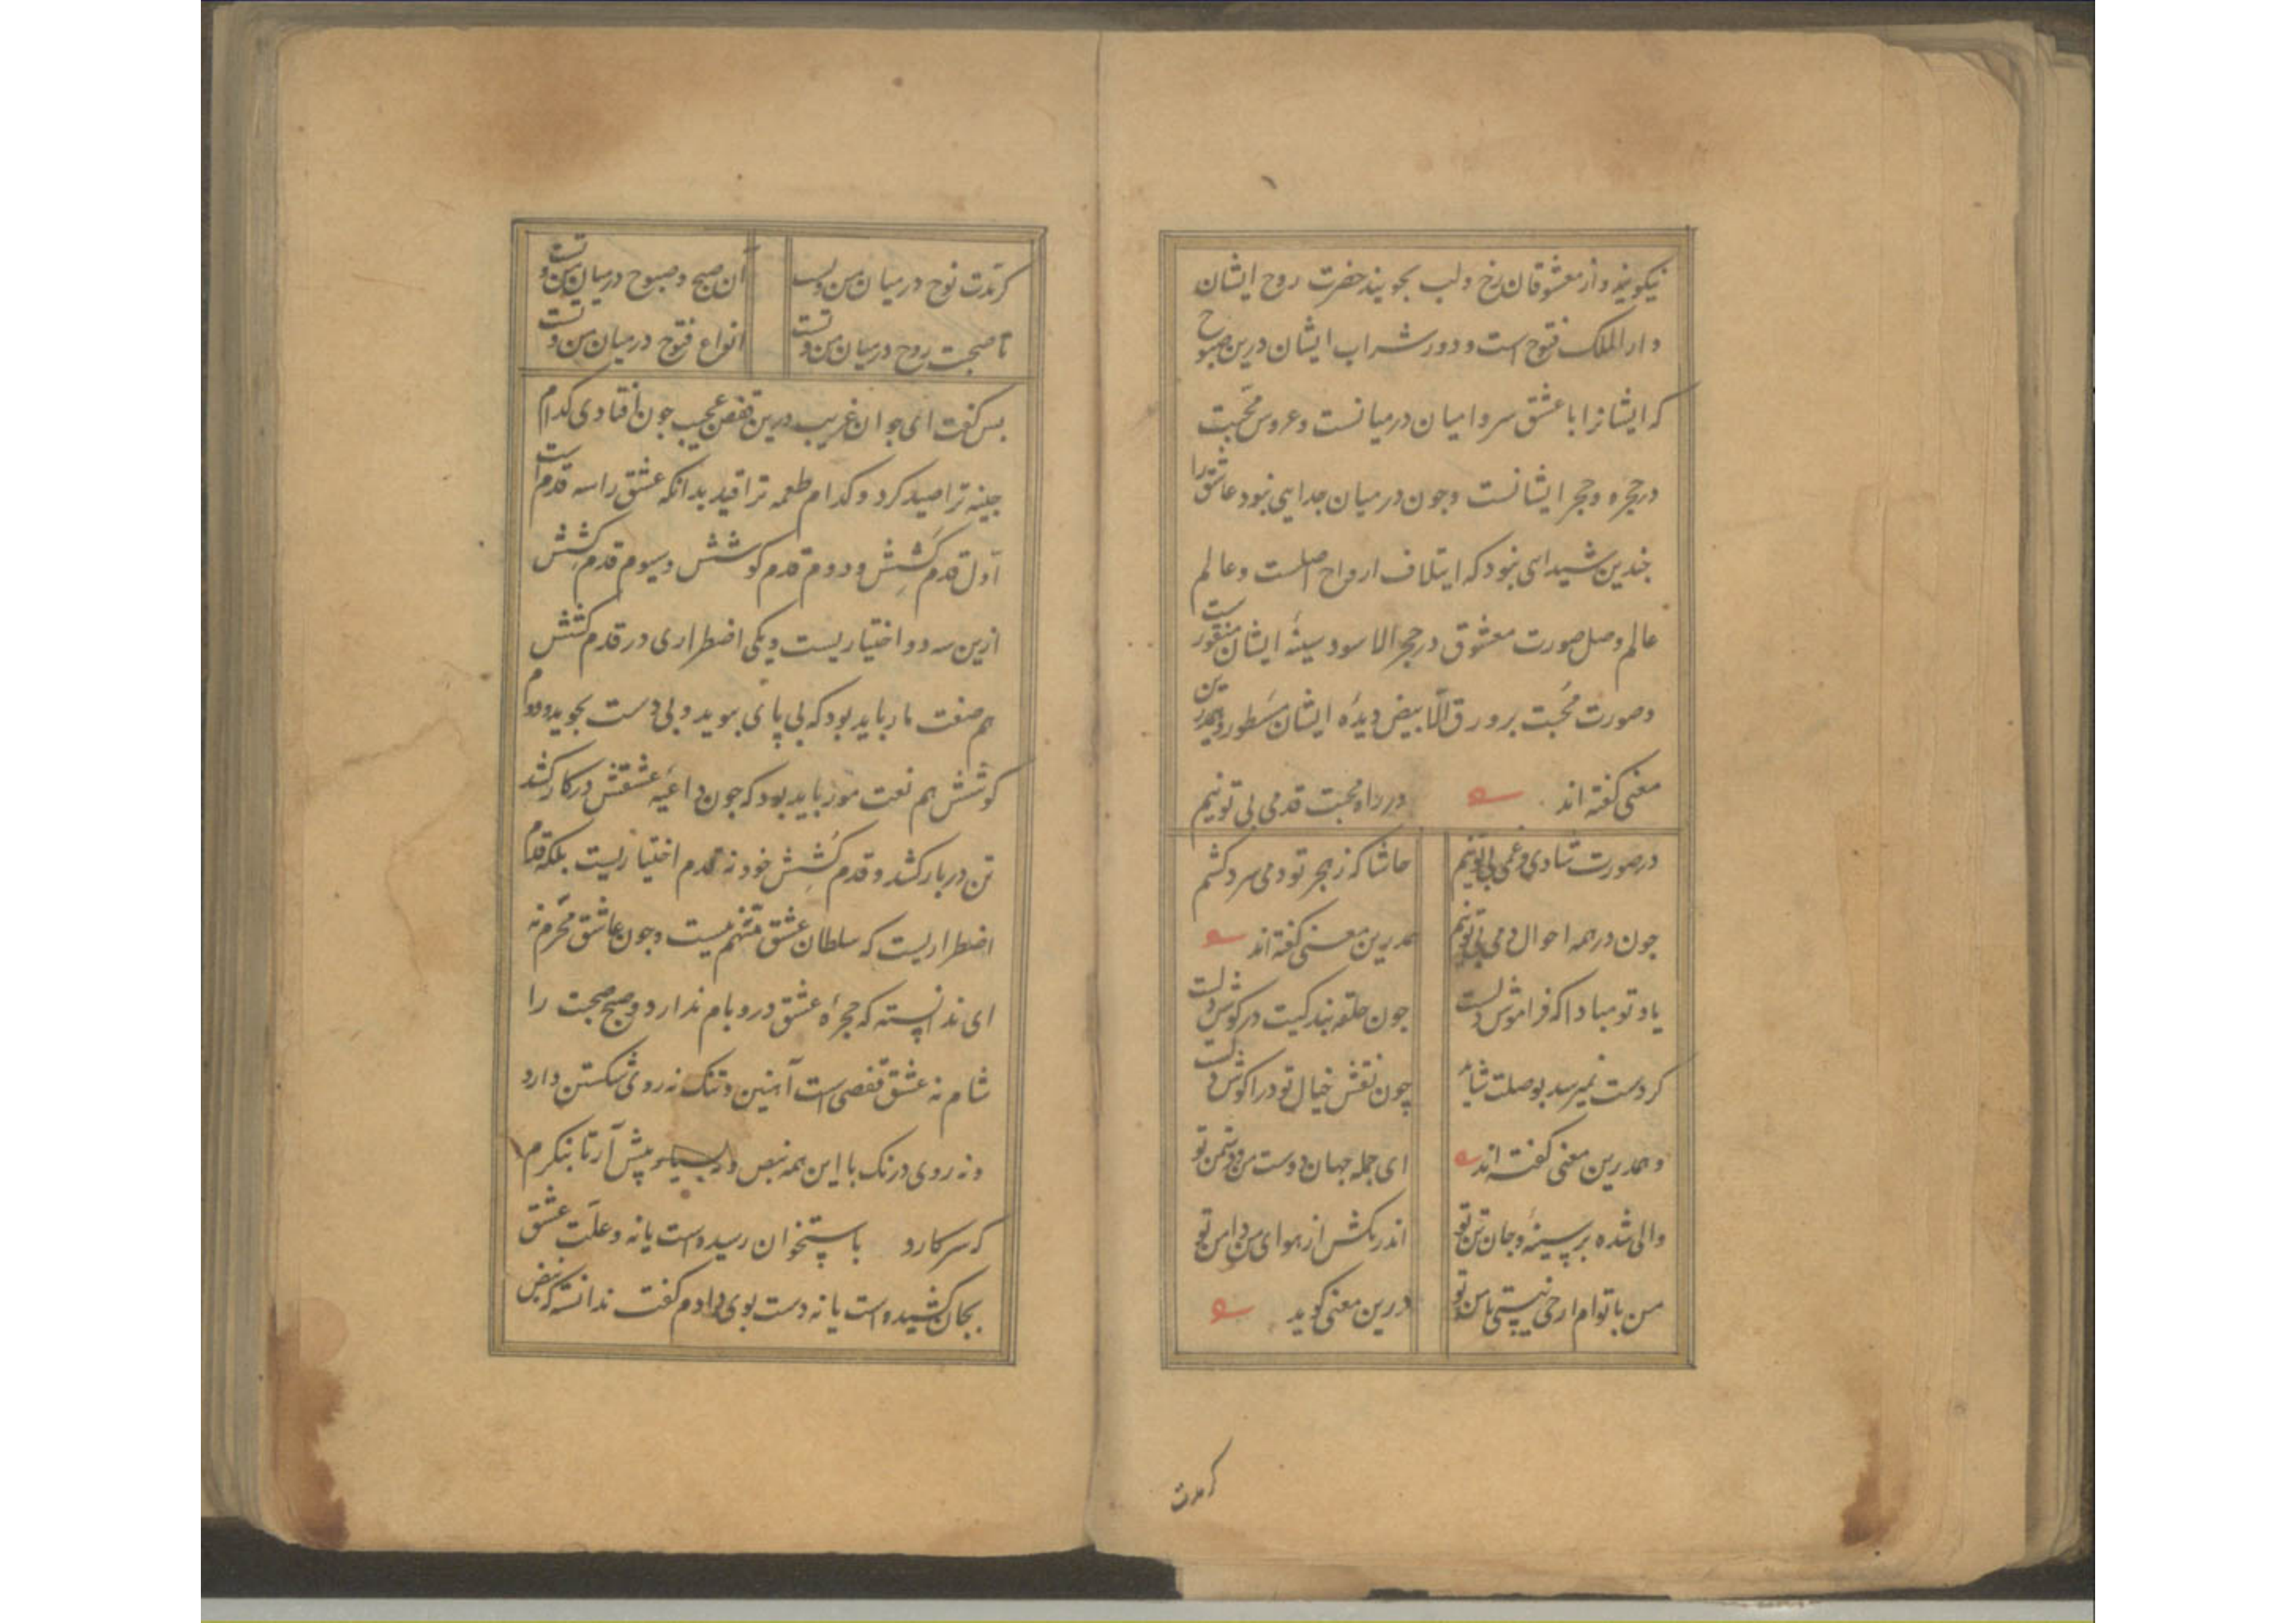 نیکویند و از معشوقان رخ و لب بجویند حضرت روح ایشان
دار الملک فتوح است و دور شراب ایشان درین صبوح
که ایشانرا با عشق سر و امیان در میانست و عروس محبت
در حجره و حجر ایشانست و جون در میان جدایی نبود عاشق را
جندین شیدایی نبود که ایتلاف ارواح اصلست و عالم
عالم وصل صورت معشوق در حجر الاسود سینهٔ ایشان منقورست
و صورت محبت بر ورق الابیض دیدهٔ ایشان مسطور و همدرین
معنی کفته اند
در راه محبت قدمی بی تو نیم
در صورت شادی و غمی بی تو نیم
حاشا که ز هجر تو دمی سرد کشم
جون در همه احوال دمی بی تو نیم
همدرین معنی کفته اند
یاد تو مبادا که فراموش دلست
جون حلقه بندکیت در کوش دلست
کر دست نمیرسد بوصلت شاید
چون نقش خیال تو در اکوش دلست
و همدرین معنی کفته اند
ای جمله جهان دوست من و دشمن تو
والی شده بر سینه و جان تن تو
اندر مکش از هوای من دامن تو
من با توام ار حی نیستی با من تو
درین معنی کوید
کر مدت
کر مدت نوح در میان من و تست
آن صبح و صبوح در میان من و تست
تا صحبت روح در میان من و تست
انواع فتوح در میان من و تست
بس کفت ای جوان غریب درین قفص عجیب جون افتادی کدام
جینه ترا صید کرد و کدام طعمه ترا قید بدانکه عشق را سه قدم است
اول قدم کشش و دوم قدم کوشش و سیوم قدم کشش
ازین سه دو اختیاریست و یکی اضطراری در قدم کشش
هم صفت مار باید بود که بی پای بپوید و بی دست بجوید و در
کوشش هم نعت مور باید بود که جون داعیه عشقش در کار کشد
تن در بار کشد و قدم کشش خود نه قدم اختیاریست بلکه قدم
اضطراریست که سلطان عشق متهم نیست و جون عاشق محرم نه
ای ندانسته که حجرهٔ عشق در و بام ندارد و صبح صحبت را
شام نه عشق قفصی است آهنین و تنک نه روی شکستن دارد
و نه روی درنک با این همه نبض و پیش آر تا بنکرم
که سر کارد باستخوان رسیده است یا نه و علت عشق
بجان کشیده است یا نه دست بوی دادم کفت ندانسته که نبض